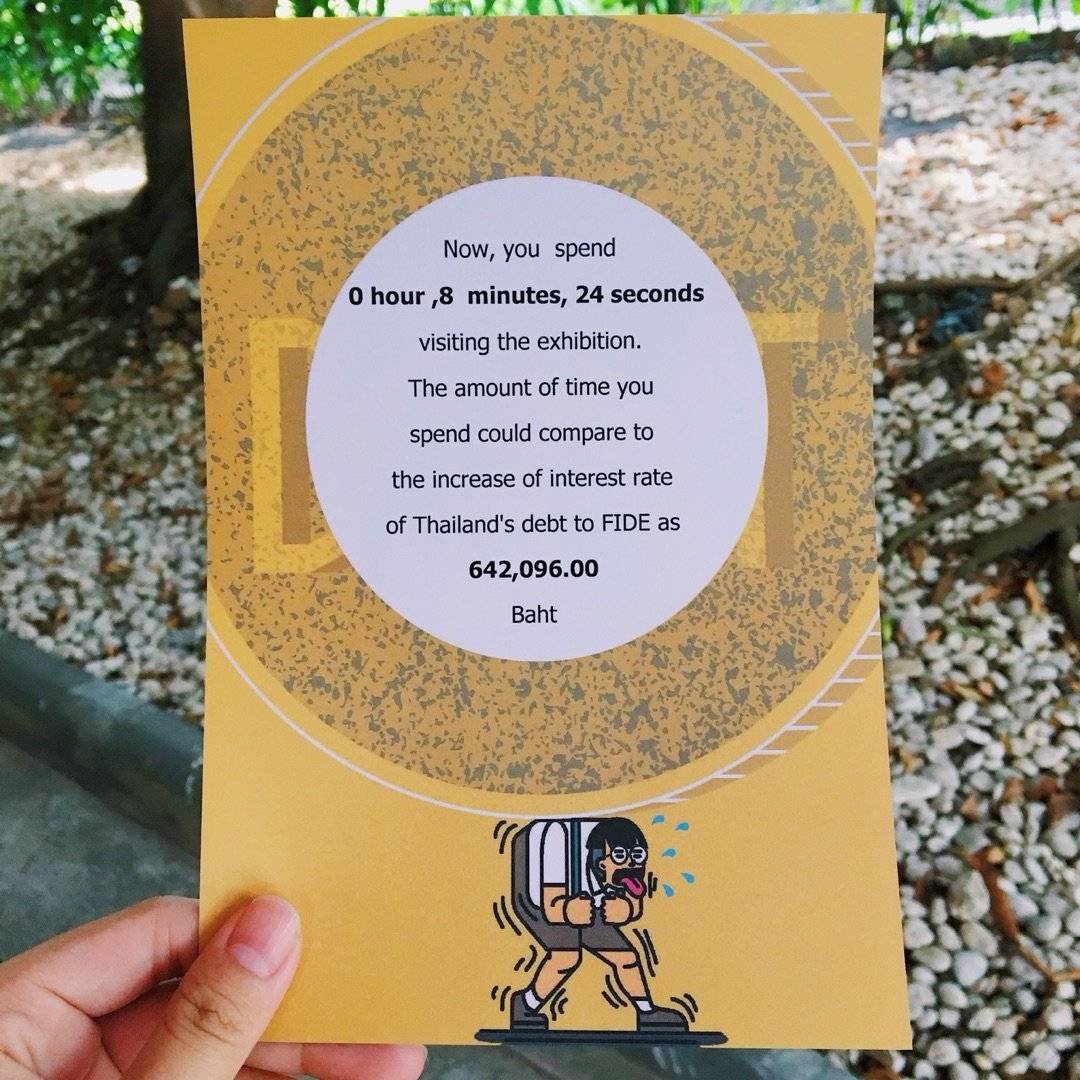 Now, you  spend
0 hour ,8  minutes, 24 seconds
visiting the exhibition.
The amount of time you
spend could compare to
the increase of interest rate
of Thailand's debt to FIDE as
642,096.00
Baht